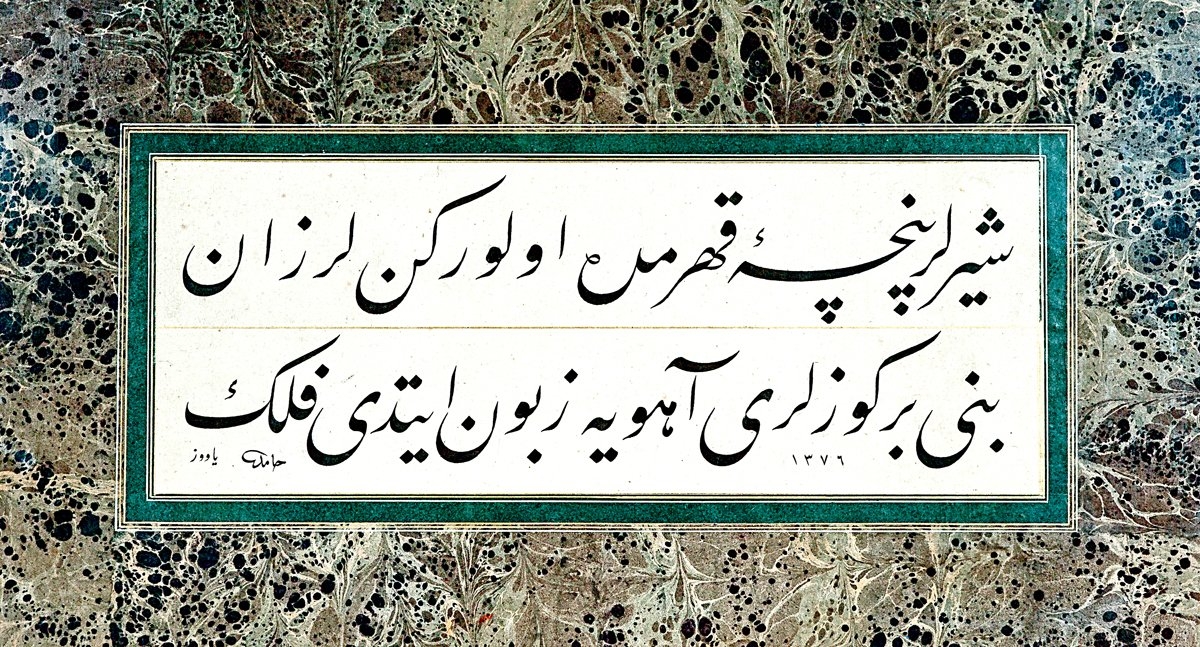 شیرلر پنچۀ قهرمده اولوركن لرزان
بنی بر كوزلری آهویه زبون ایتدی فلك
١٣٧٦ حامد یاووز